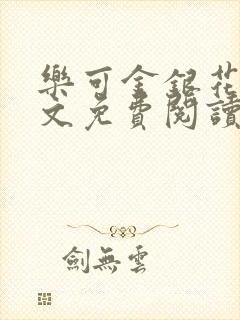 樂可金銀花
文免費閱讀
劍無雲